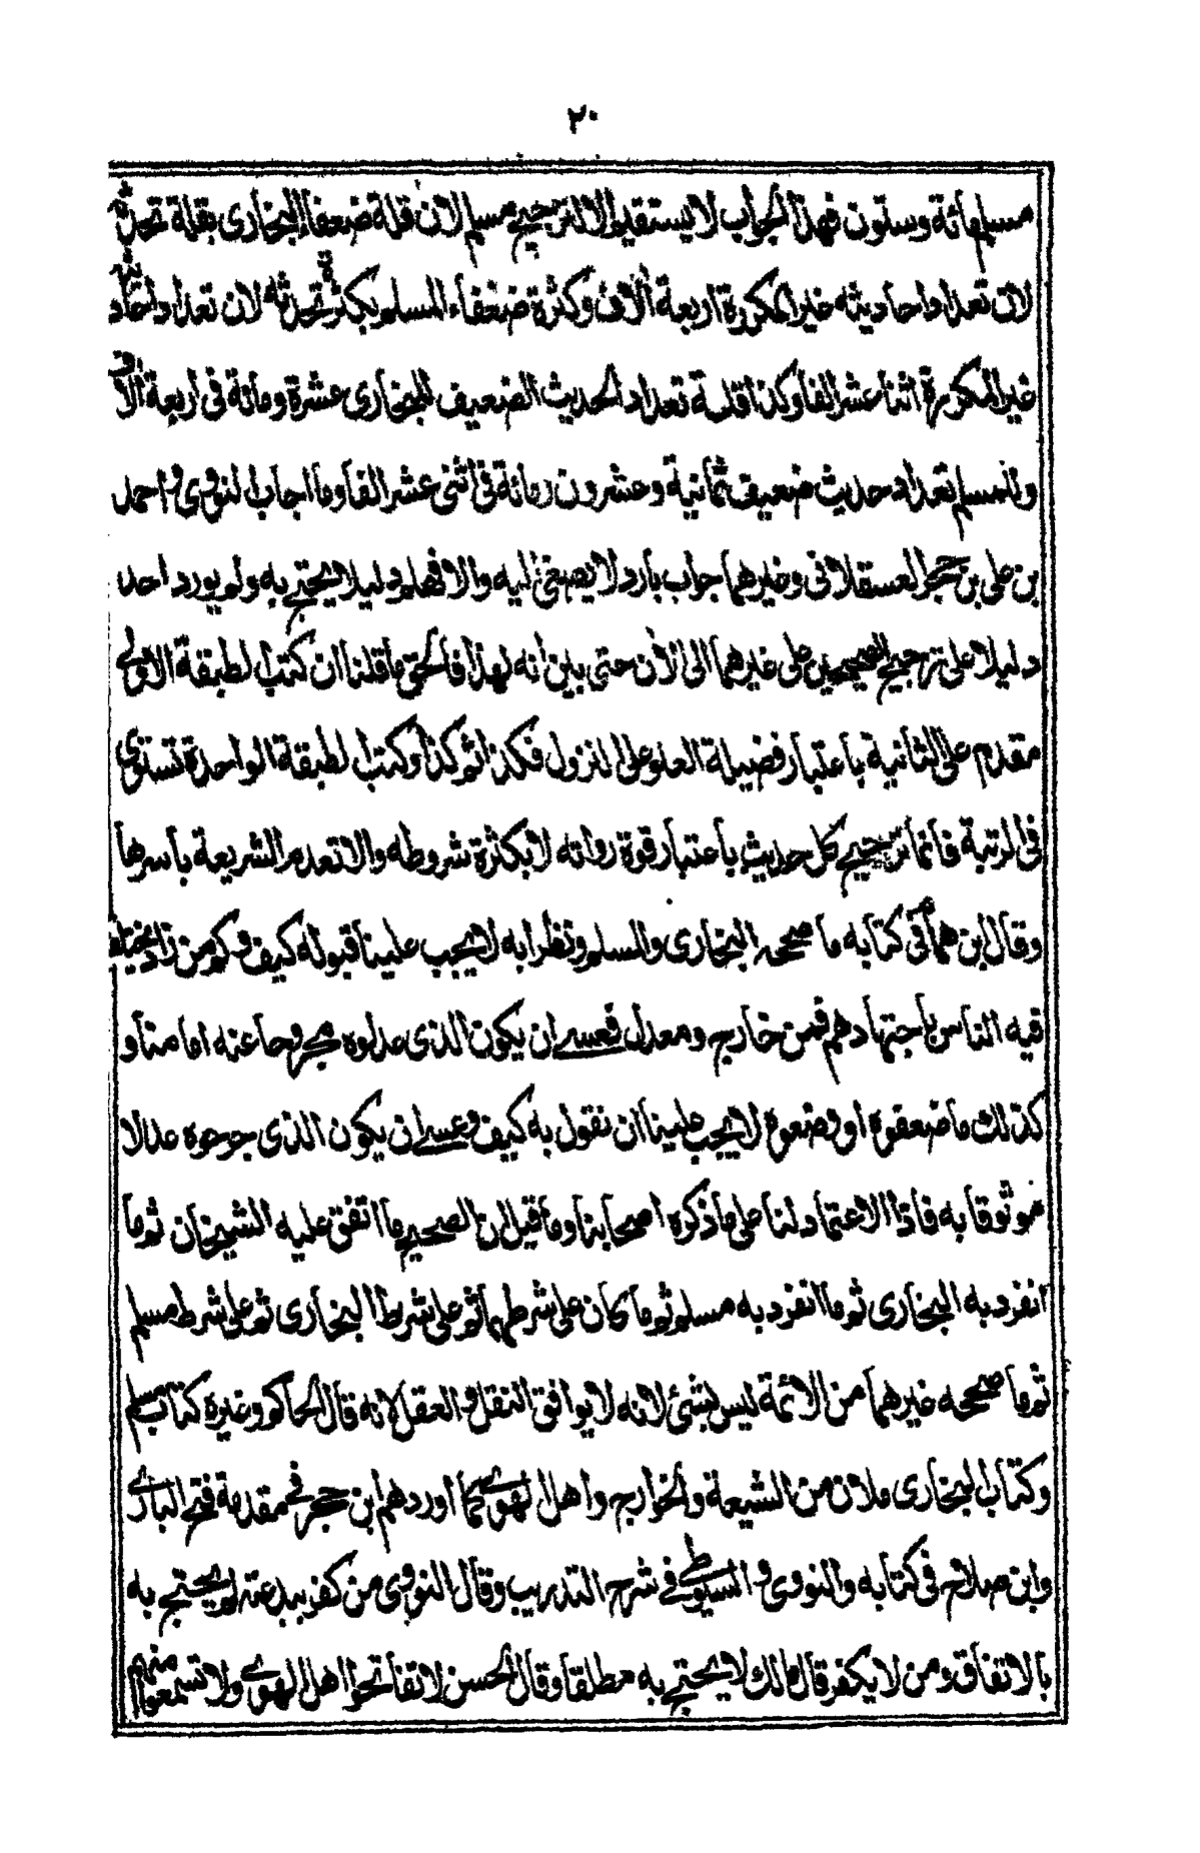 ٢٠
مسلم مائة وستون فهذا الجواب لا يستقيم والا لترجيح مسلم لان قلة ضعفاء البخارى بقلة تحدثه
لان تعداد احاديثه غير المكررة اربعة آلاف وكثرة ضعفاء المسلم بكثرة تحدثه لان تعداد احاديثه
غير المكررة اثنا عشر الفا وكذا قلة تعداد الحديث الضعيف للبخارى عشرة ومائة فى اربعة الاف
وتا مسلم تعداد حديث ضعيف ثمانية وعشرون ومائة فى اثنى عشر الفا وما اجاب النووى و احمد
بن على بن حجر العسقلانى وغيرهما جواب بارد لا يصغى اليه والا فهلم دليلا يحتج به ولم يورد احد
دليلا على ترجيح الصحيحين على غيرهما الى الآن حتى يبين انه لهذا فالحق ما قلنا ان كتب الطبقة الاولى
مقدم على الثانية باعتبار فضيلة العلو على النزول فكذا ثم كذا وكتب الطبقة الواحدة تستوى
فى المرتبة فانما ترجيح كل حديث باعتبار قوة رواته لا بكثرة شروطه والا تعدم الشريعة باسرها
وقال ابن همام فى كتابه ما صححه البخارى والمسلم ونظرا به لا يجب علينا قبوله كيف وكم من يختلف
فيه الناس باجتهادهم فمن خارج ومعدل فعسى ان يكون الذى عدلوه مجروحا عنه امامنا و
كذلك ما ضعفوه او وضعوه لا يجب علينا ان نقول به كيف وعسى ان يكون الذى جرحوه عدلا
موثوقا به فاذا الاعتماد لنا على ما ذكره اصحابنا وما قيل ان الصحيح ما اتفق عليه الشيخان ثم ما
انفرد به البخارى ثم ما انفرد به مسلم ثم ما كان على شرطهما ثم على شرط البخارى ثم على شرط مسلم
ثم ما صححه غيرهما من الائمة ليس بشئ لانه لا يوافق النقل و العقل لانه قال الحاكم وغيره كتاب مسلم
وكتاب البخارى ملآن من الشيعة والخوارج واهل الهوى كما اوردهم ابن حجر فى مقدمة فتح البارى
وابن صلاح فى كتابه والنووى و السيوطى فى شرح التدريب وقال النووى من كفر ببدعته لم يحتج به
بالاتفاق ومن لا يكفر قال مالك لا يحتج به مطلقا وقال الحسن لا تفاتحوا اهل الهوى ولا تسمعوا منهم